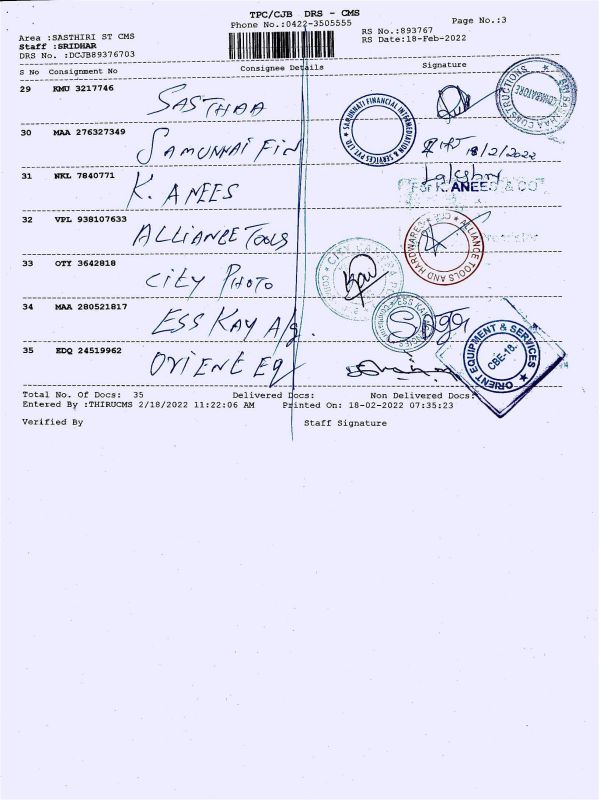 TPC/CJB DRS - CMS
Phone No.:0422-3505555
Page No.:3
Area :SASTHIRI ST CMS
Staff :SRIDHAR
DRS No. :DCJB89376703
RS No.:893767
RS Date:18-Feb-2022
S No Consignment No Consignee Details Signature
29 KMU 3217746 SASTHAA
30 MAA 276327349 SAMUNNAI FIN 18/2/2022
SAMUNNATI FINANCIAL INTERMEDIATION & SERVICES PVT LTD
31 NKL 7840771 K. ANEES
For K. ANEES & CO
32 VPL 938107633 ALLIANCE TOOLS
ALLIANCE TOOLS AND HARDWARES ★ CBE ★
33 OTY 3642818 CITY PHOTO
34 MAA 280521817 ESS KAY A/g.
ESS KAY
35 EDQ 24519962 ORIENT EQ
ORIENT EQUIPMENT & SERVICES ★
CBE-18.
Total No. Of Docs: 35 Delivered Docs: Non Delivered Docs:
Entered By :THIRUCMS 2/18/2022 11:22:06 AM Printed On: 18-02-2022 07:35:23
Verified By Staff Signature